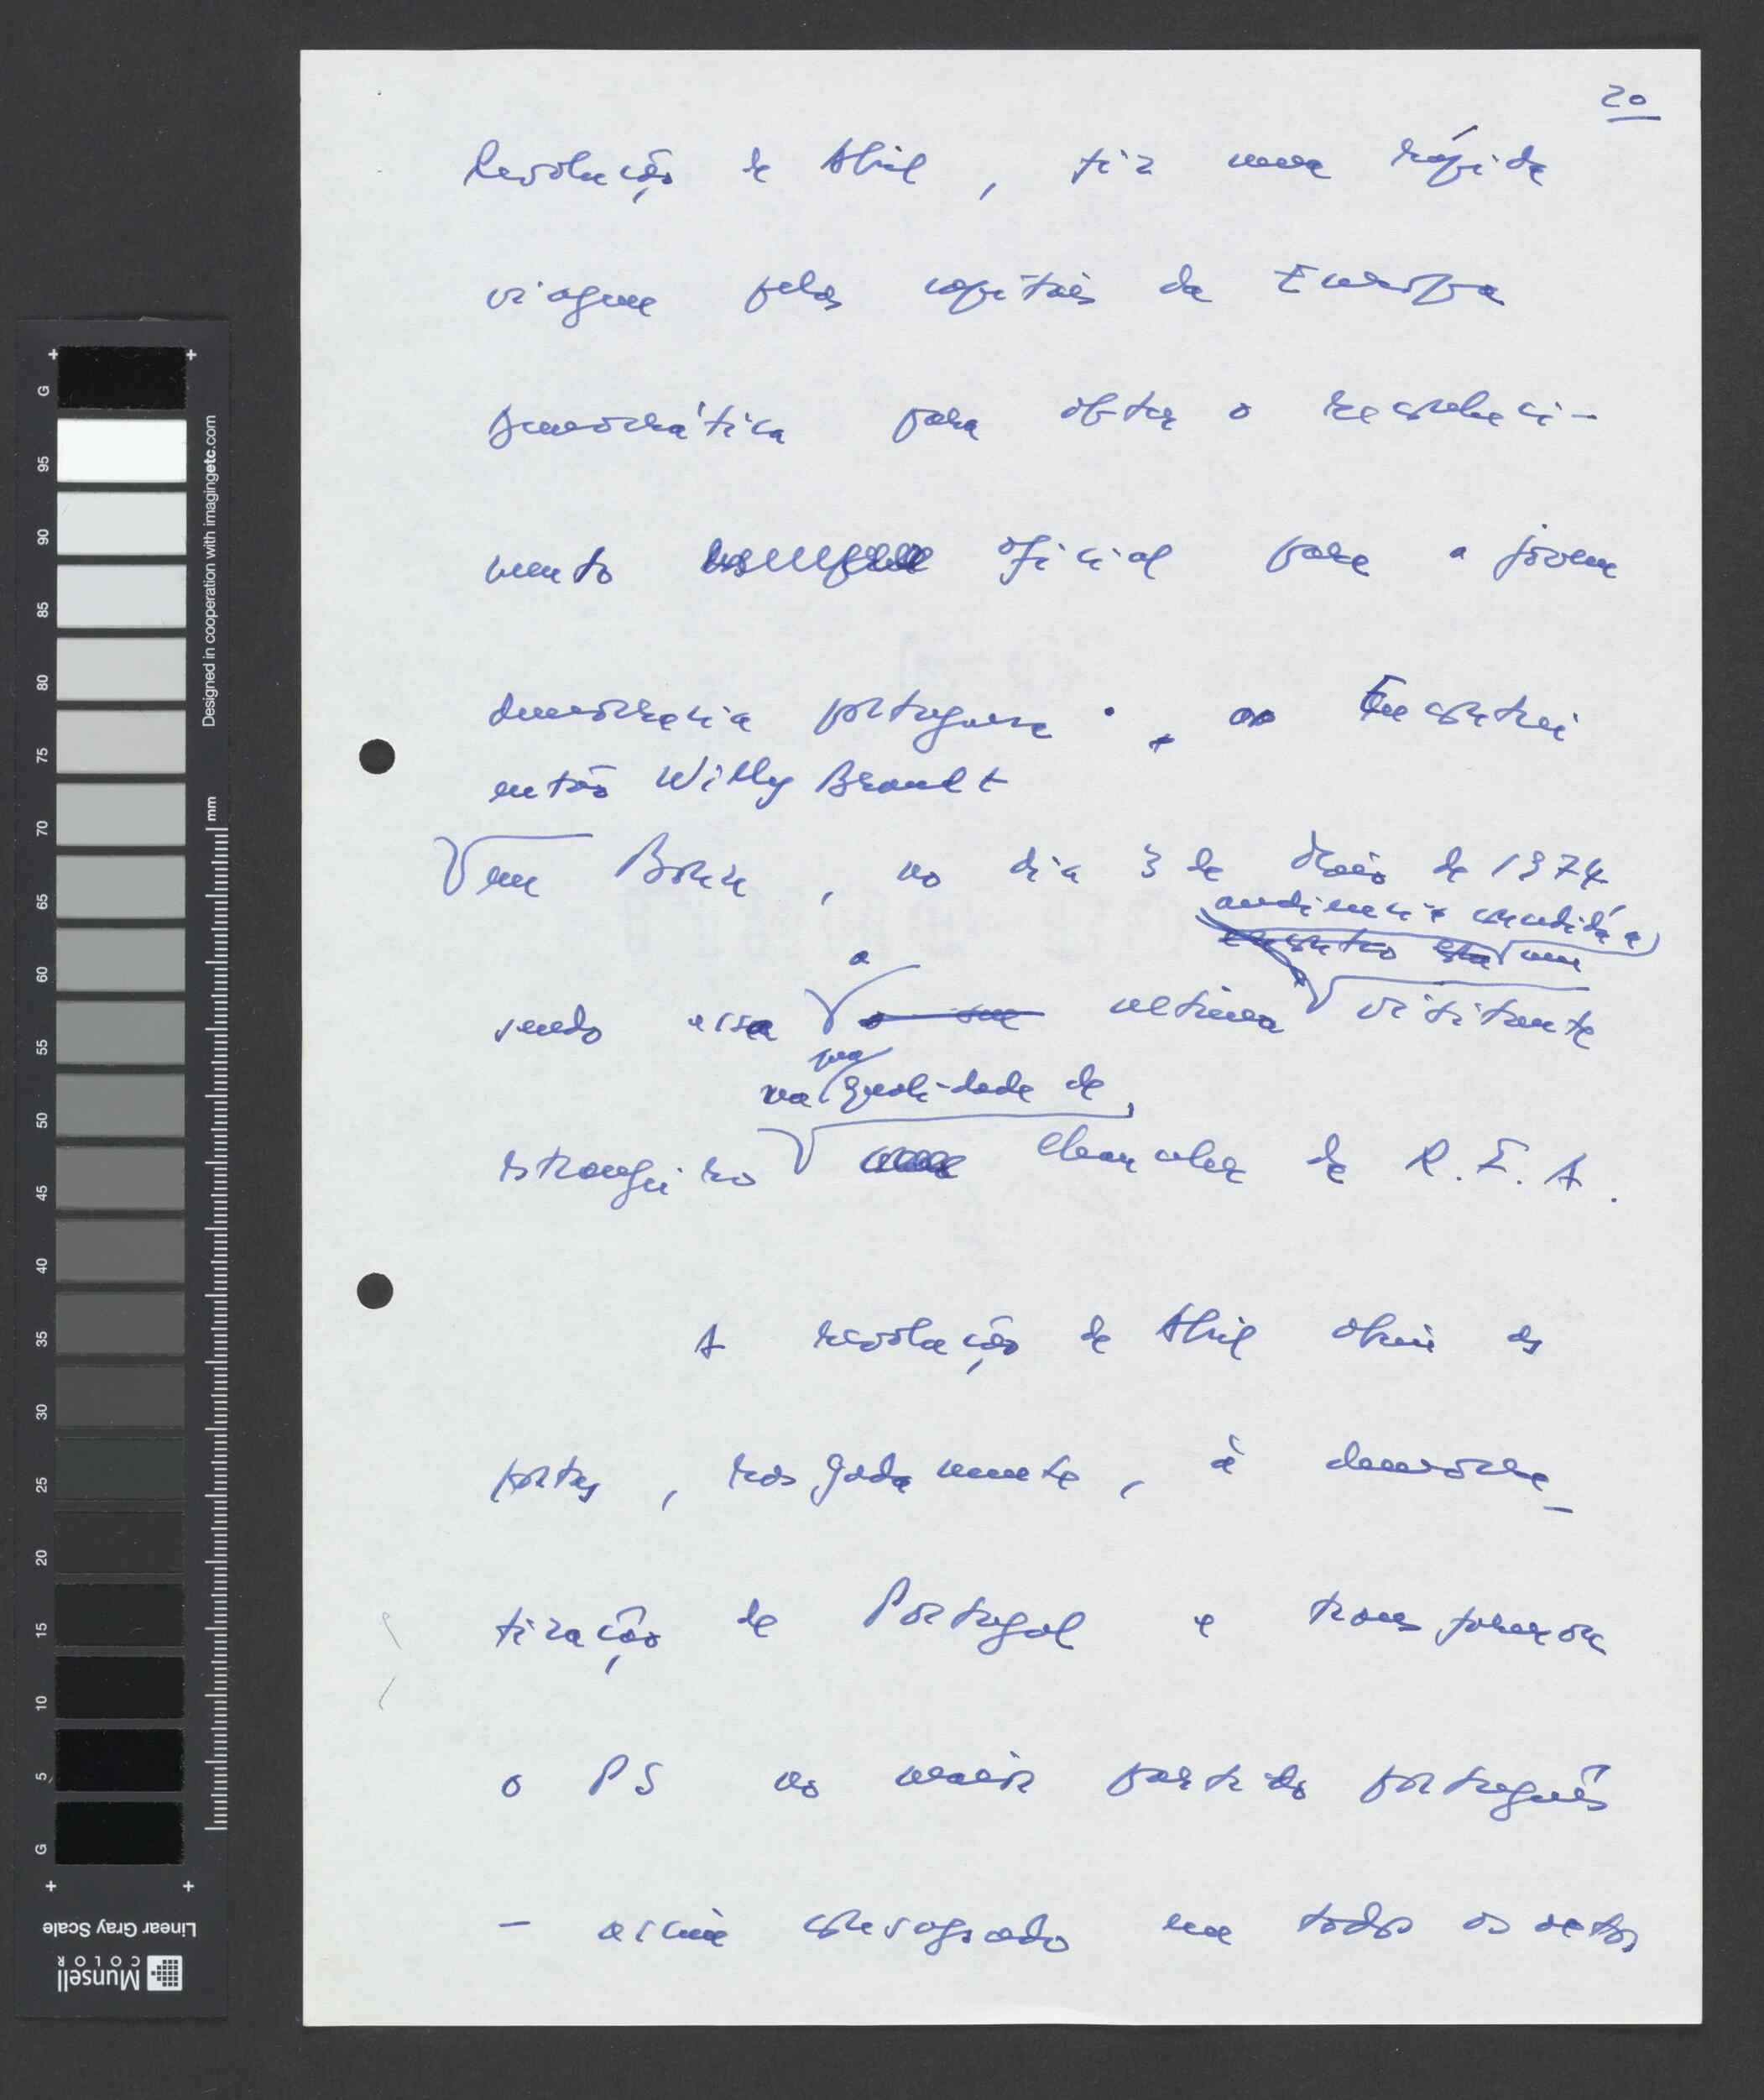 20
Revolução de Abril, fiz uma rápida
viagem pelas capitais da Europa
Democrática para obter o reconheci-
mento oficial para a jovem
democracia portuguesa. Encontrei
então Willy Brandt
em Bona, no dia 3 de Maio de 1974
audiência concedida a
encontro um
a
sendo essa última visitante
na qualidade de
estrangeiro chanceler da R.F.A.
A revolução de Abril abriu as
portas, rasgadamente, à democra-
tização de Portugal e transformou
o PS no maior partido português
- assim consagrado em todos os actos
G
95
90
85
80
75
70
65
60
55
50
45
40
35
30
25
20
15
10
5
G
Designed in cooperation with imagingetc.com
mm
Linear Gray Scale
Munsell
COLOR